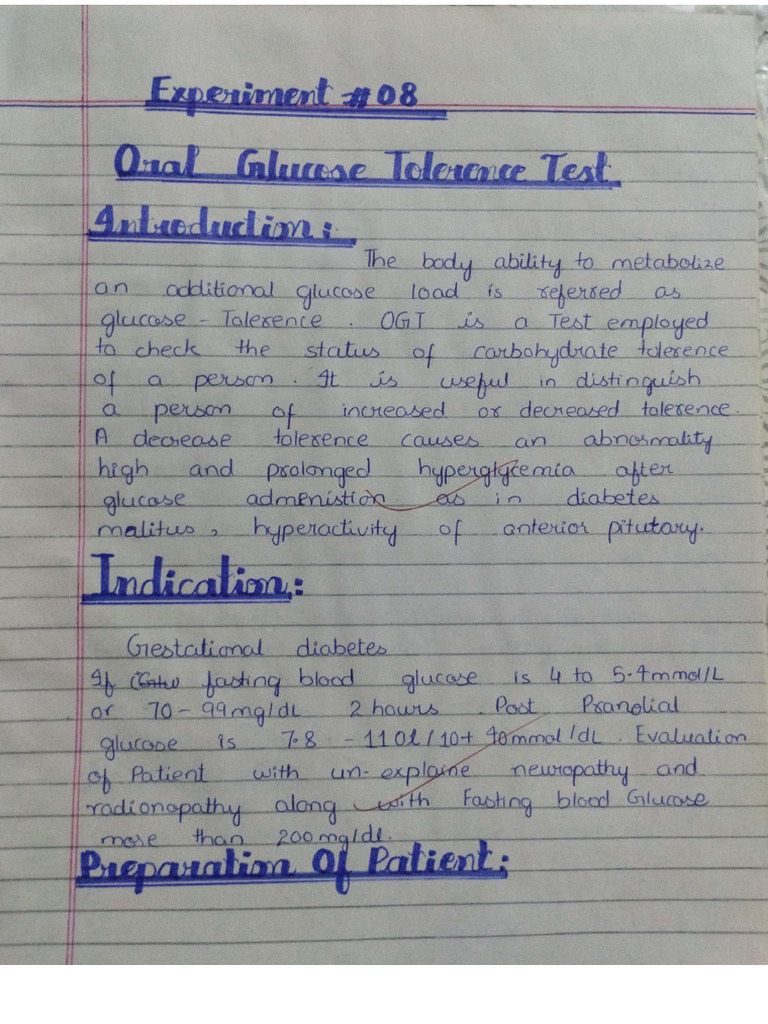 Experiment #08
Oral Glucose Tolerence Test
Introduction:
The body ability to metabolize
an additional glucose load is referred as
glucose - Tolerence . OGT is a Test employed
to check the status of carbohydrate tolerence
of a person. It is useful in distinguish
a person of increased or decreased tolerence.
A decrease tolerence causes an abnormality
high and prolonged hyperglycemia after
glucose admenistion as in diabetes
malitus, hyperactivity of anterior pitutary.
Indication:
Gestational diabetes
If fasting blood glucose is 4 to 5.4mmol/L
or 70-99mg/dL 2 hours Post Prandial
glucose is 7.8 - 110l/10+ 40mmol/dL. Evaluation
of Patient with un-explaine neuropathy and
radionopathy along with Fasting blood Glucose
more than 200mg/dl.
Preparation Of Patient: